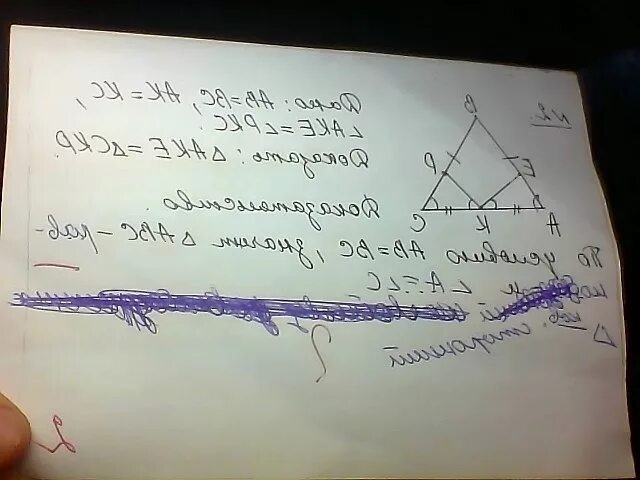 №2.
Дано: AB=BC, AK=KC,
∠AKE=∠PKC.
Доказать: △AKE=△CKP.
B
P
E
C
K
A
Доказательство.
По условию AB=BC, значит △ABC – рав-
∠A=∠C
сторонний
2